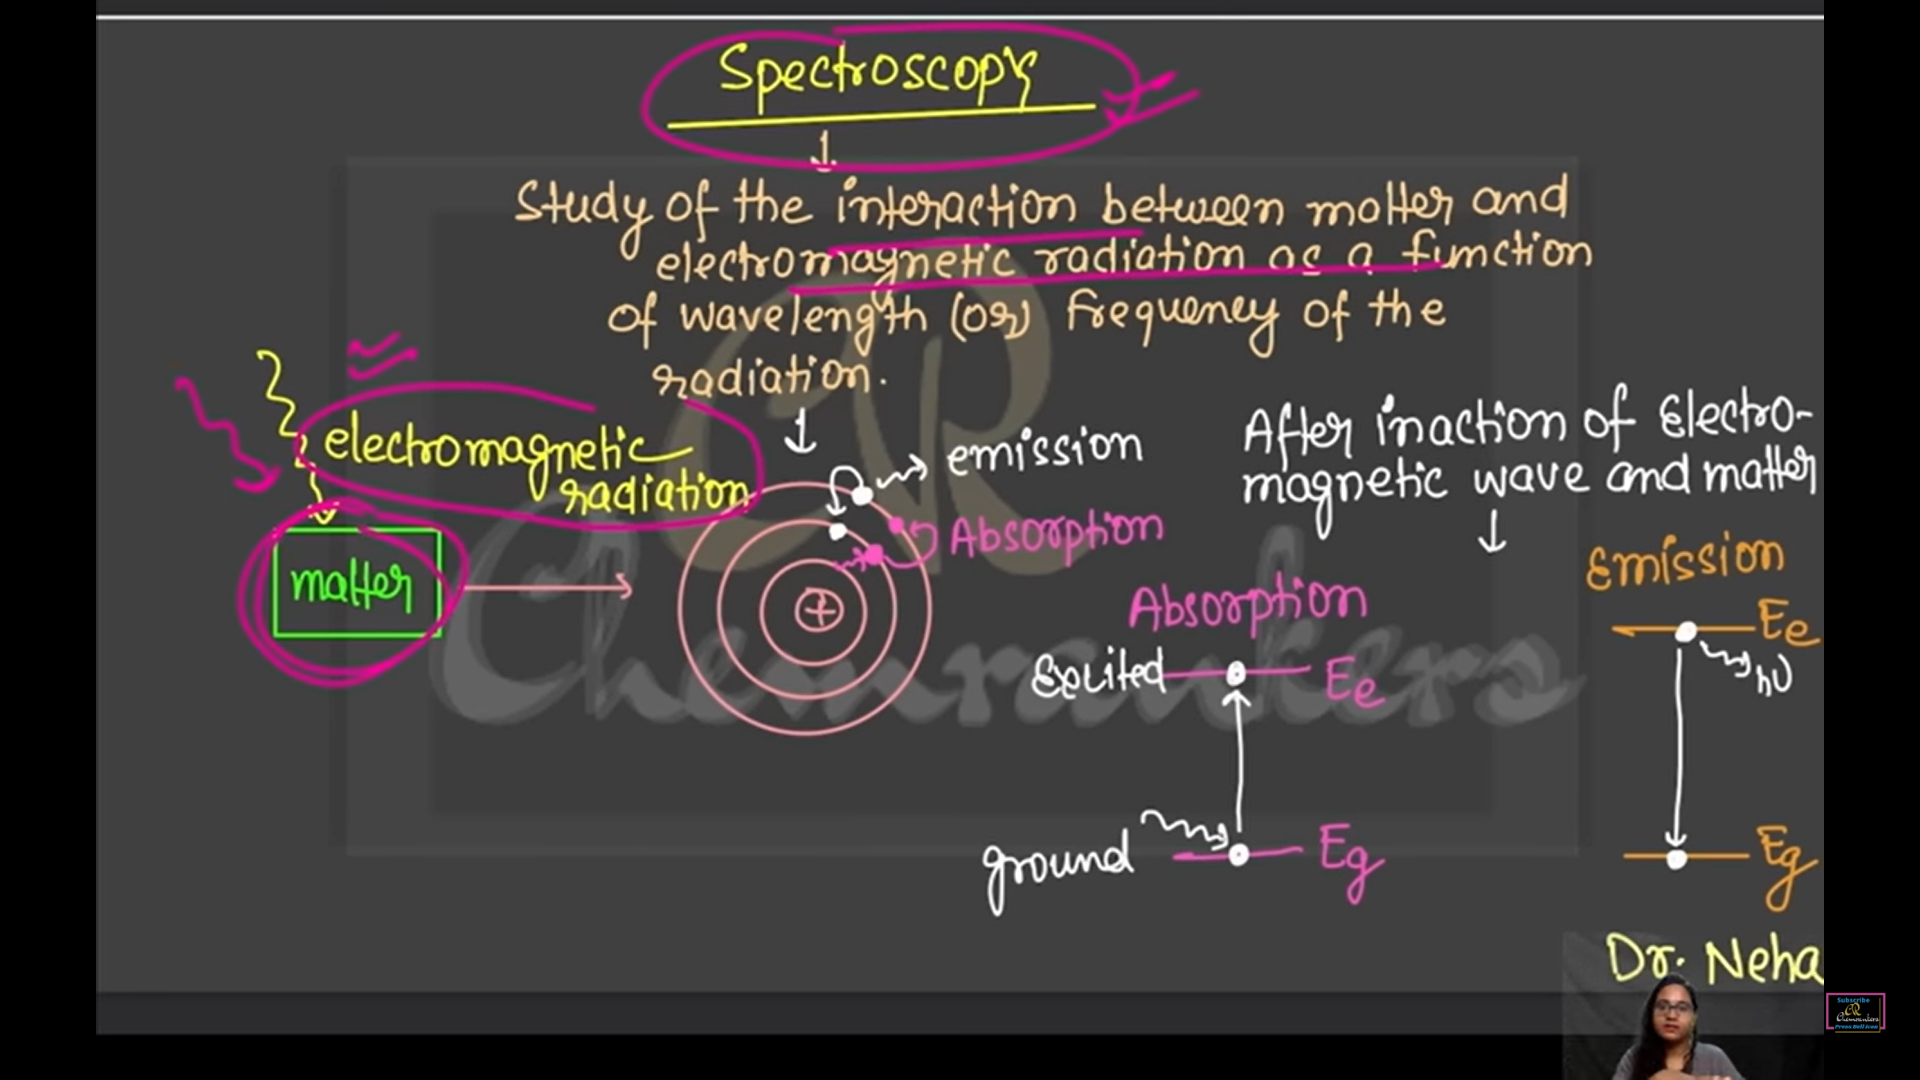 Spectroscopy
Study of the interaction between matter and
electromagnetic radiation as a function
of wavelength (or) frequency of the
radiation.
electromagnetic
radiation
matter
emission
Absorption
After inaction of Electro-
magnetic wave and matter
Absorption
Excited
Ee
ground
Eg
Emission
Ee
hν
Eg
Dr. Neha
Chemrankers
CR
Subscribe
CR
Chemrankers
Press Bell Icon